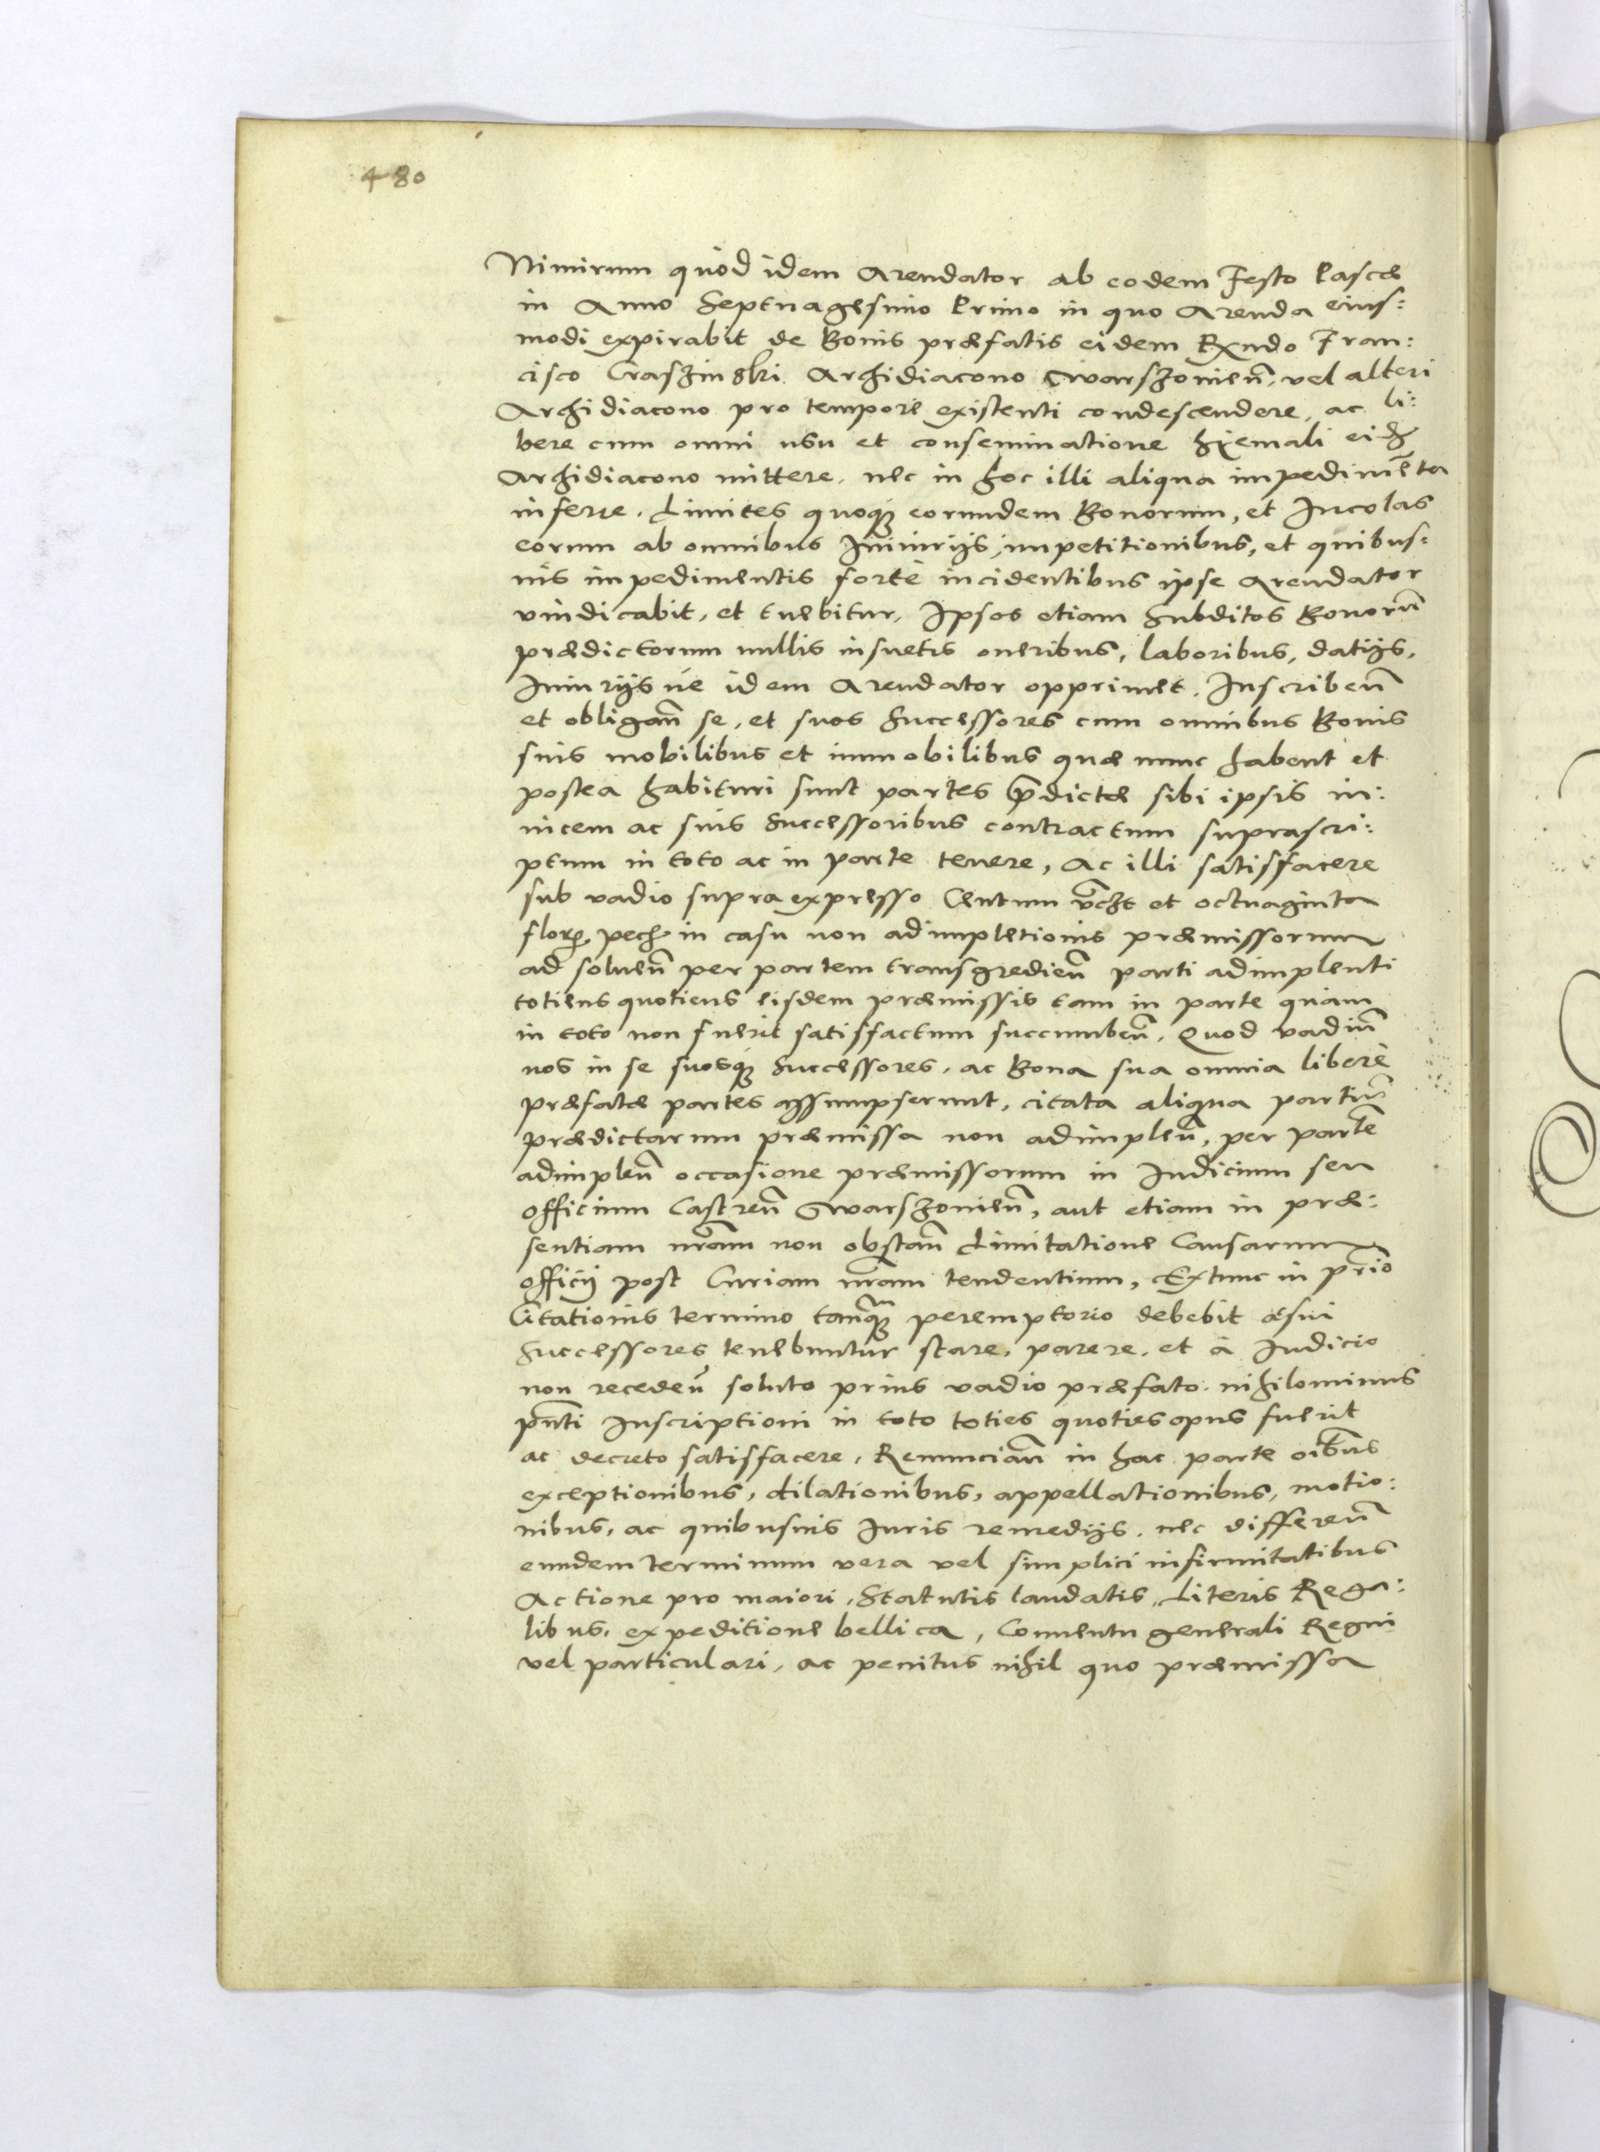 480
Nimirum quod idem Arendator ab eodem Festo Pascæ
in Anno Septuagesimo Primo in quo Arenda eius:
modi expirabit de Bonis præfatis eidem Rndo Fran:
cisco Craszinski Archidiacono Warszoviеñ. vel alteri
Archidiacono pro tempore existenti condescendere, ac li:
bere cum omni usu et conseminatione hiemali eid
Archidiacono mittere, nec in hoc illi aliqua impedimēta
inferre. Limites quoq eorundem Bonorum, et Incolas
eorum ab omnibus Iniurijs, impetitionibus, et quibus:
vis impedimentis forte incidentibus ipse Arendator
vindicabit, et tuebitur. Ipsos etiam Subditos Bonorū
prædictorum nullis insuetis oneribus, laboribus, datijs,
Iniurijs ve idem Arendator opprimet. Inscribeñ
et obligañ se, et suos Successores cum omnibus Bonis
suis mobilibus et immobilibus quæ nunc habent et
postea habituri sunt partes p̄dictæ sibi ipsis in:
uicem ac suis Successoribus contractum suprascri:
ptum in toto ac in parte tenere, Ac illi satisfacere
sub vadio supra expresso Centum et octuaginta
flor. pech in casu non adimpletionis præmissorum
ad solueñ per partem transgredieñ parti adimplenti
totiens quotiens eisdem præmissis tam in parte quam
in toto non fuerit satisfactum succumbeñ. Quod vadiū
nos in se suosq Successores, ac Bona sua omnia libere
præfatæ partes assumpserunt, citata aliqua partiū
prædictarum præmissa non adimpleñ, per partē
adimpleñ occasione præmissorum in Iudicium seu
officium Castreñ Warszovieñ, aut etiam in præ:
sentiam nr̄am non obstañ Limitatione Causarum
officij post Curiam nr̄am tendentium, Extunc in primo
Citationis termino tanq̄ peremptorio debebit et sui
Successores tenebuntur stare, parere, et à Iudicio
non recedeñ soluto prius vadio præfato nihilominus
pn̄ti Inscriptioni in toto toties quoties opus fuerit
ac decreto satisfacere. Renunciañ in hac parte oībus
exceptionibus, dilationibus, appellationibus, motio:
nibus, ac quibusuis Iuris remedijs, nec differeñ
eundem terminum vera vel simplici infirmitatibus
Actione pro maiori, Statutis laudatis, Literis Rega:
libus, expeditione bellica, Conuentu generali Regni
vel particulari, ac penitus nihil quo præmissa